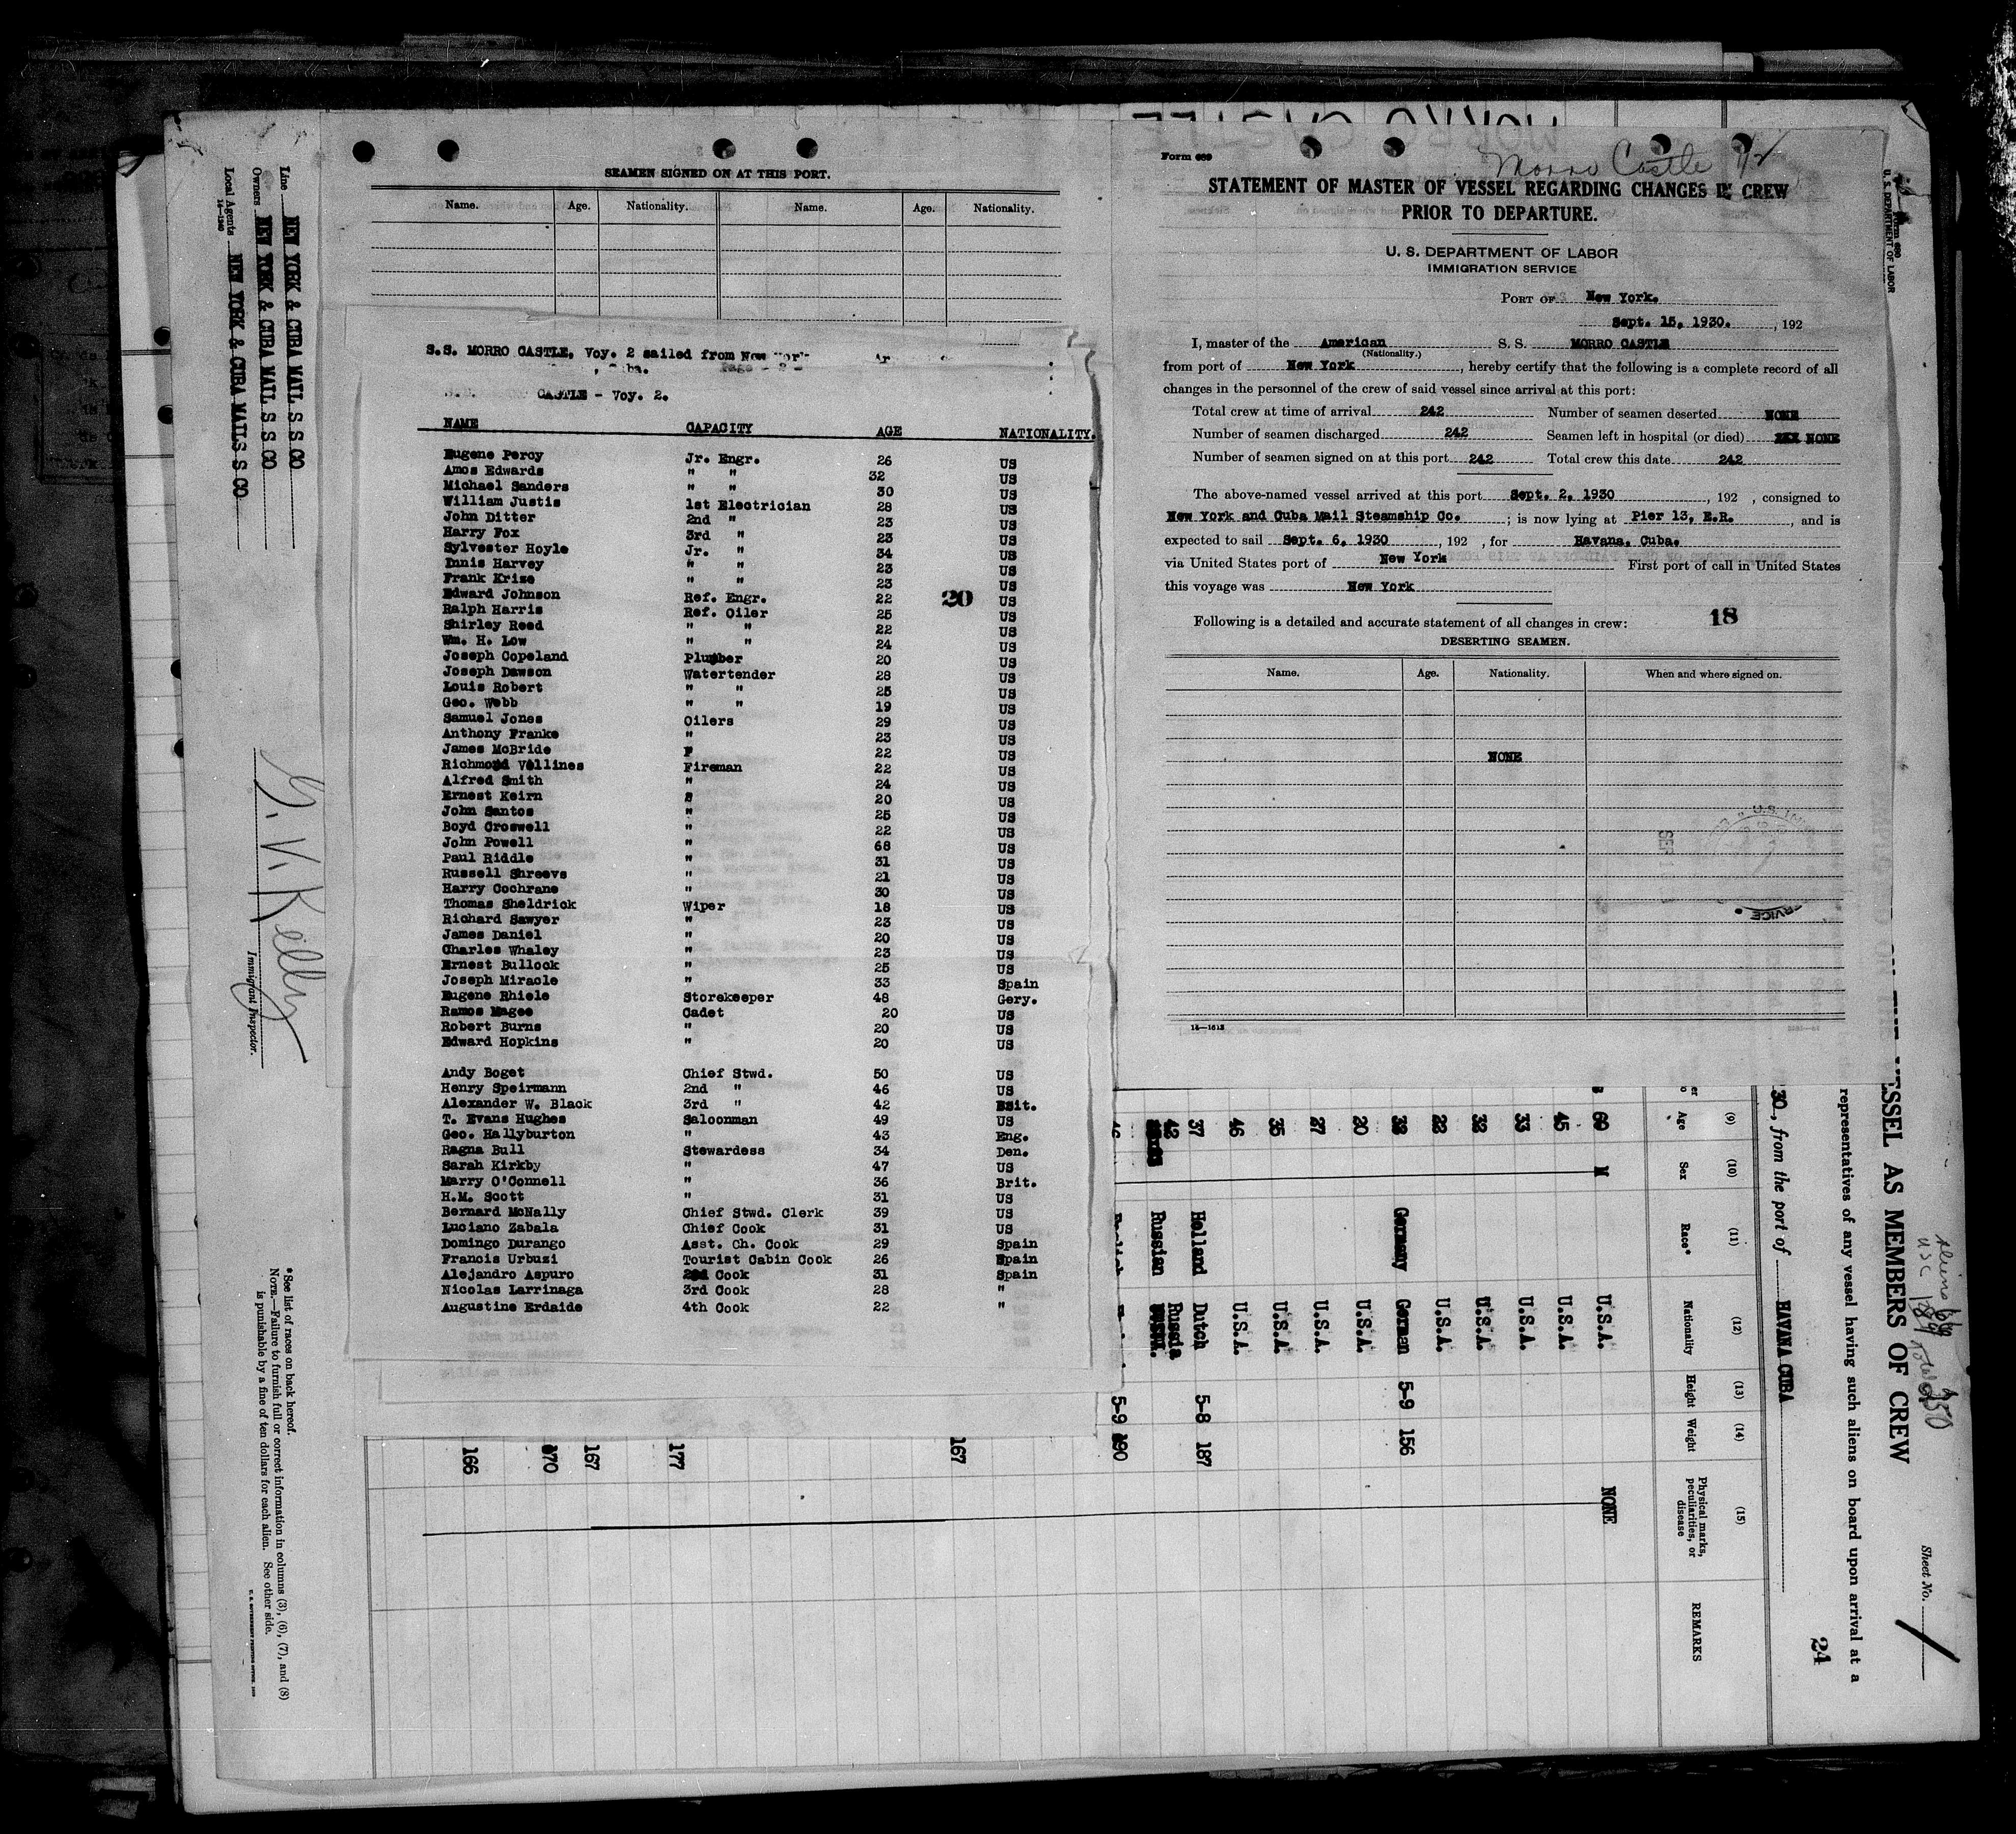 SEAMEN SIGNED ON AT THIS PORT.
Name. Age. Nationality. Name. Age. Nationality.
S.S. MORRO CASTLE, Voy. 2 sailed from New York
CASTLE - Voy. 2.
NAME CAPACITY AGE NATIONALITY.
Eugene Percy Jr. Engr. 26 US
Amos Edwards " " 32 US
Michael Sanders " " 30 US
William Justis 1st Electrician 28 US
John Ditter 2nd " 23 US
Harry Fox 3rd " 23 US
Sylvester Hoyle Jr. " 34 US
Innis Harvey " " 23 US
Frank Krise " " 23 US
Edward Johnson Ref. Engr. 22 20 US
Ralph Harris Ref. Oiler 25 US
Shirley Reed " " 22 US
Wm. H. Low " " 24 US
Joseph Copeland Plumber 20 US
Joseph Dawson Watertender 28 US
Louis Robert " " 25 US
Geo. Webb " " 19 US
Samuel Jones Oilers 29 US
Anthony Franke " 23 US
James McBride 22 US
Richmond Vellines Fireman 22 US
Alfred Smith " 24 US
Ernest Keirn 20 US
John Santos " 25 US
Boyd Croswell " 22 US
John Powell " 68 US
Paul Riddle " 31 US
Russell Shreevs " 21 US
Harry Cochrane " 30 US
Thomas Sheldrick Wiper 18 US
Richard Sawyer " 23 US
James Daniel " 20 US
Charles Whaley " 23 US
Ernest Bullock " 25 US
Joseph Miracle " 33 Spain
Eugene Rhiele Storekeeper 48 Gery.
Ramos Magee Cadet 20 US
Robert Burns " 20 US
Edward Hopkins " 20 US
Andy Boget Chief Stwd. 50 US
Henry Speirmann 2nd " 46 US
Alexander W. Black 3rd " 42 Brit.
T. Evans Hughes Saloonman 49 US
Geo. Hallyburton " 43 Eng.
Ragna Bull Stewardess 34 Den.
Sarah Kirkby " 47 US
Marry O'Connell " 36 Brit.
H.M. Scott " 31 US
Bernard McNally Chief Stwd. Clerk 39 US
Luciano Zabala Chief Cook 31 US
Domingo Durango Asst. Ch. Cook 29 Spain
Francis Urbuzi Tourist Cabin Cook 26 Spain
Alejandro Aspuro 2nd Cook 31 Spain
Nicolas Larrinaga 3rd Cook 28 "
Augustine Erdaide 4th Cook 22 "
Form 689
Morro Castle
STATEMENT OF MASTER OF VESSEL REGARDING CHANGES IN CREW
PRIOR TO DEPARTURE.
U. S. DEPARTMENT OF LABOR
IMMIGRATION SERVICE
PORT OF New York.
Sept. 15, 1930. , 192
I, master of the American S. S. MORRO CASTLE
(Nationality.)
from port of New York , hereby certify that the following is a complete record of all
changes in the personnel of the crew of said vessel since arrival at this port:
Total crew at time of arrival 242 Number of seamen deserted NONE
Number of seamen discharged 242 Seamen left in hospital (or died) NONE
Number of seamen signed on at this port 242 Total crew this date 242
The above-named vessel arrived at this port Sept. 2, 1930 , 192 , consigned to
New York and Cuba Mail Steamship Co. ; is now lying at Pier 13, E.R. , and is
expected to sail Sept. 6, 1930 , 192 , for Havana, Cuba.
via United States port of New York First port of call in United States
this voyage was New York
Following is a detailed and accurate statement of all changes in crew: 18
DESERTING SEAMEN.
Name. Age. Nationality. When and where signed on.
NONE
Line NEW YORK & CUBA MAIL S S CO
Owners NEW YORK & CUBA MAIL S S CO
Local Agents NEW YORK & CUBA MAILS S CO.
Immigrant Inspector.
*See list of races on back hereof.
NOTE.—Failure to furnish full or correct information in columns (3), (6), (7), and (8)
is punishable by a fine of ten dollars for each alien. See other side.
Sheet No. 1
ESSEL AS MEMBERS OF CREW
representatives of any vessel having such aliens on board upon arrival at a
30, from the port of HAVANA CUBA
24
(9) (10) (11) (12) (13) (14) (15)
Age Sex Race* Nationality Height Weight Physical marks, peculiarities, or disease REMARKS
69 M U.S.A. NONE
45 U.S.A.
33 U.S.A.
32 U.S.A.
22 U.S.A.
32 Germany German 5-9 156
20 U.S.A.
27 U.S.A.
35 U.S.A.
46 U.S.A.
37 Holland Dutch 5-8 187
42 Russian Russia
5-9 190
167
177
167
170
166